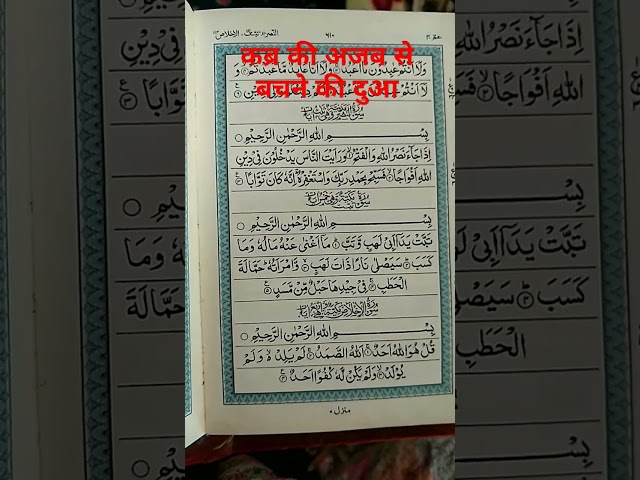 कब्र की अजब से
बचने की दुआ
النصر ١١٠ تبت ١١١ الاخلاص ١١٢
٦١٠
عم ٣٠
وَلَاۤ اَنْتُمْ عٰبِدُوْنَ مَاۤ اَعْبُدُ وَلَاۤ اَنَا عَابِدٌ مَّا عَبَدْتُّمْ وَ
لَاۤ اَنْتُمْ دِيْنِ
بِسْمِ اللهِ الرَّحْمٰنِ الرَّحِيْمِ
اِذَا جَآءَ نَصْرُ اللهِ وَالْفَتْحُ وَرَاَيْتَ النَّاسَ يَدْخُلُوْنَ فِيْ دِيْنِ
اللهِ اَفْوَاجًا فَسَبِّحْ بِحَمْدِ رَبِّكَ وَاسْتَغْفِرْهُ اِنَّهٗ كَانَ تَوَّابًا
بِسْمِ اللهِ الرَّحْمٰنِ الرَّحِيْمِ
تَبَّتْ يَدَاۤ اَبِيْ لَهَبٍ وَّتَبَّ مَاۤ اَغْنٰى عَنْهُ مَالُهٗ وَمَا
كَسَبَ سَيَصْلٰى نَارًا ذَاتَ لَهَبٍ وَّامْرَاَتُهٗ حَمَّالَةَ
الْحَطَبِ فِيْ جِيْدِهَا حَبْلٌ مِّنْ مَّسَدٍ
سُوْرَةُ الْاِخْلَاصِ مَكِّيَّةٌ وَّهِيَ اَرْبَعُ اٰيَاتٍ
بِسْمِ اللهِ الرَّحْمٰنِ الرَّحِيْمِ
قُلْ هُوَ اللهُ اَحَدٌ اَللهُ الصَّمَدُ لَمْ يَلِدْ وَلَمْ
يُوْلَدْ وَلَمْ يَكُنْ لَّهٗ كُفُوًا اَحَدٌ
منزل